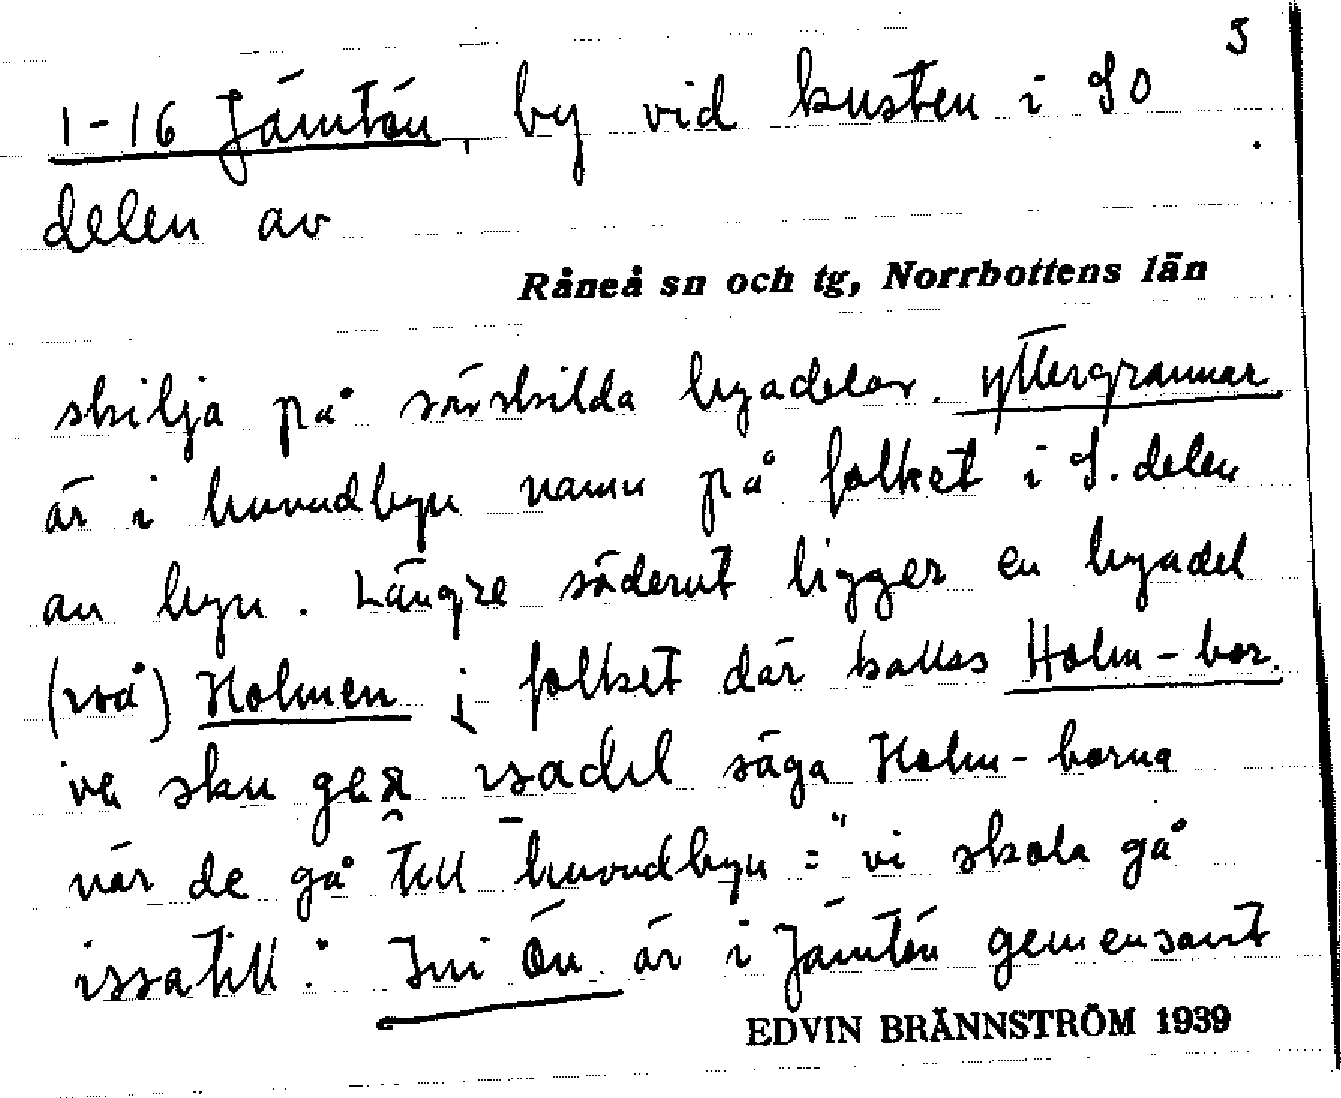 3
1-16 Jämtön, by vid kusten i SO
delen av
Råneå sn och tg, Norrbottens län
skilja på särskilda byadelar. yttergrannar
är i huvudbyn namn på folket i S. delen
av byn. Längre söderut ligger en byadel
Holmen; folket där kallas Holm-bor.
ve sku säga Holm-borna
när de gå till huvudbyn = "vi skola gå
issatill". Ini Ön är i Jämtön gemensamt
EDVIN BRÄNNSTRÖM 1939